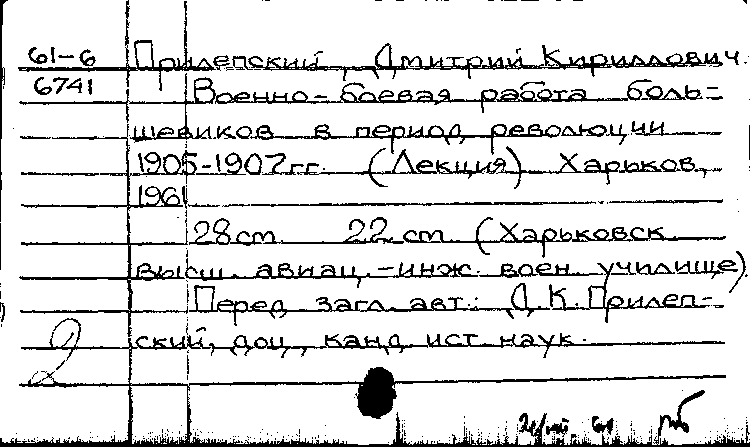 61-6 Прилепский, Дмитрий Кириллович.
6741 Военно-боевая работа боль-
шевиков в период революции
1905-1907гг. (Лекция) Харьков,
1961
28 ст. 22 см (Харьковск.
высш. авиац.-инж. воен. училище)
Перед загл. авт.: Д.К. Прилеп-
ский, доц., канд. ист. наук.
2